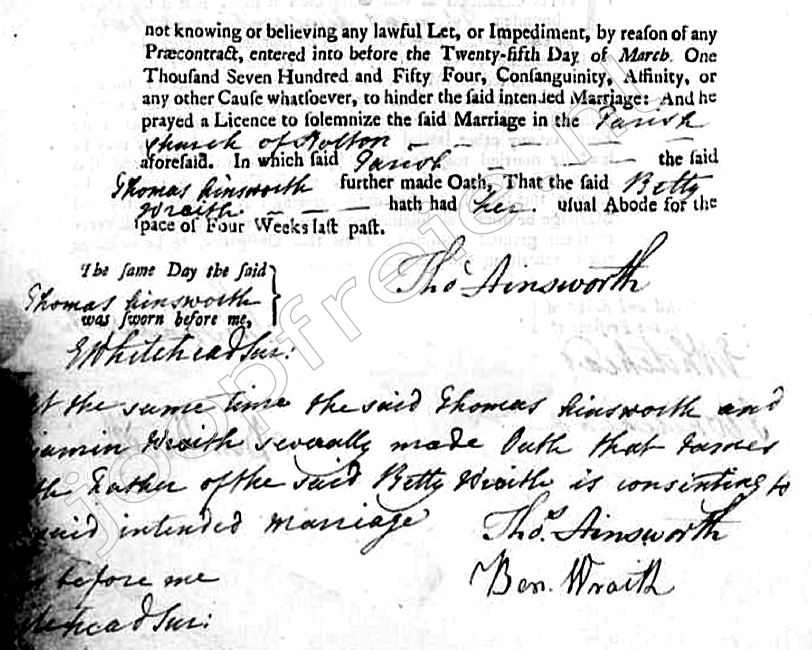 not knowing or believing any lawful Let, or Impediment, by reason of any
Præcontract, entered into before the Twenty-fifth Day of March. One
Thousand Seven Hundred and Fifty Four, Consanguinity, Affinity, or
any other Cause whatsoever, to hinder the said intended Marriage: And he
prayed a Licence to solemnize the said Marriage in the Parish
Church of Bolton — — — —
aforesaid. In which said Parish — — — the said
Thomas Ainsworth further made Oath, That the said Betty
Wraith — — — hath had her usual Abode for the
space of Four Weeks last past.
The same Day the said
Thomas Ainsworth
was sworn before me,
Tho.s Ainsworth
EWhitehead Sur:
At the same time the said Thomas Ainsworth and
jamin Wraith severally made Oath that James
th Father of the said Betty Wraith is consenting to
said intended Marriage
Tho.s Ainsworth
before me
Ben. Wraith
tehead Sur:
joopfreie.nl